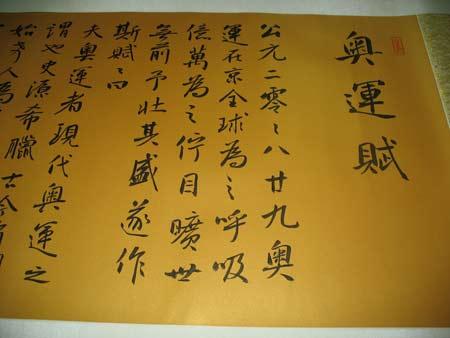 奧運賦
公元二零〻八廿九奧
運在京全球為之呼吸
億萬為之佇目曠世
無前予壯其盛遂作
斯賦〻曰
夫奧運者現代奧運之
謂也史演希臘古今
人為